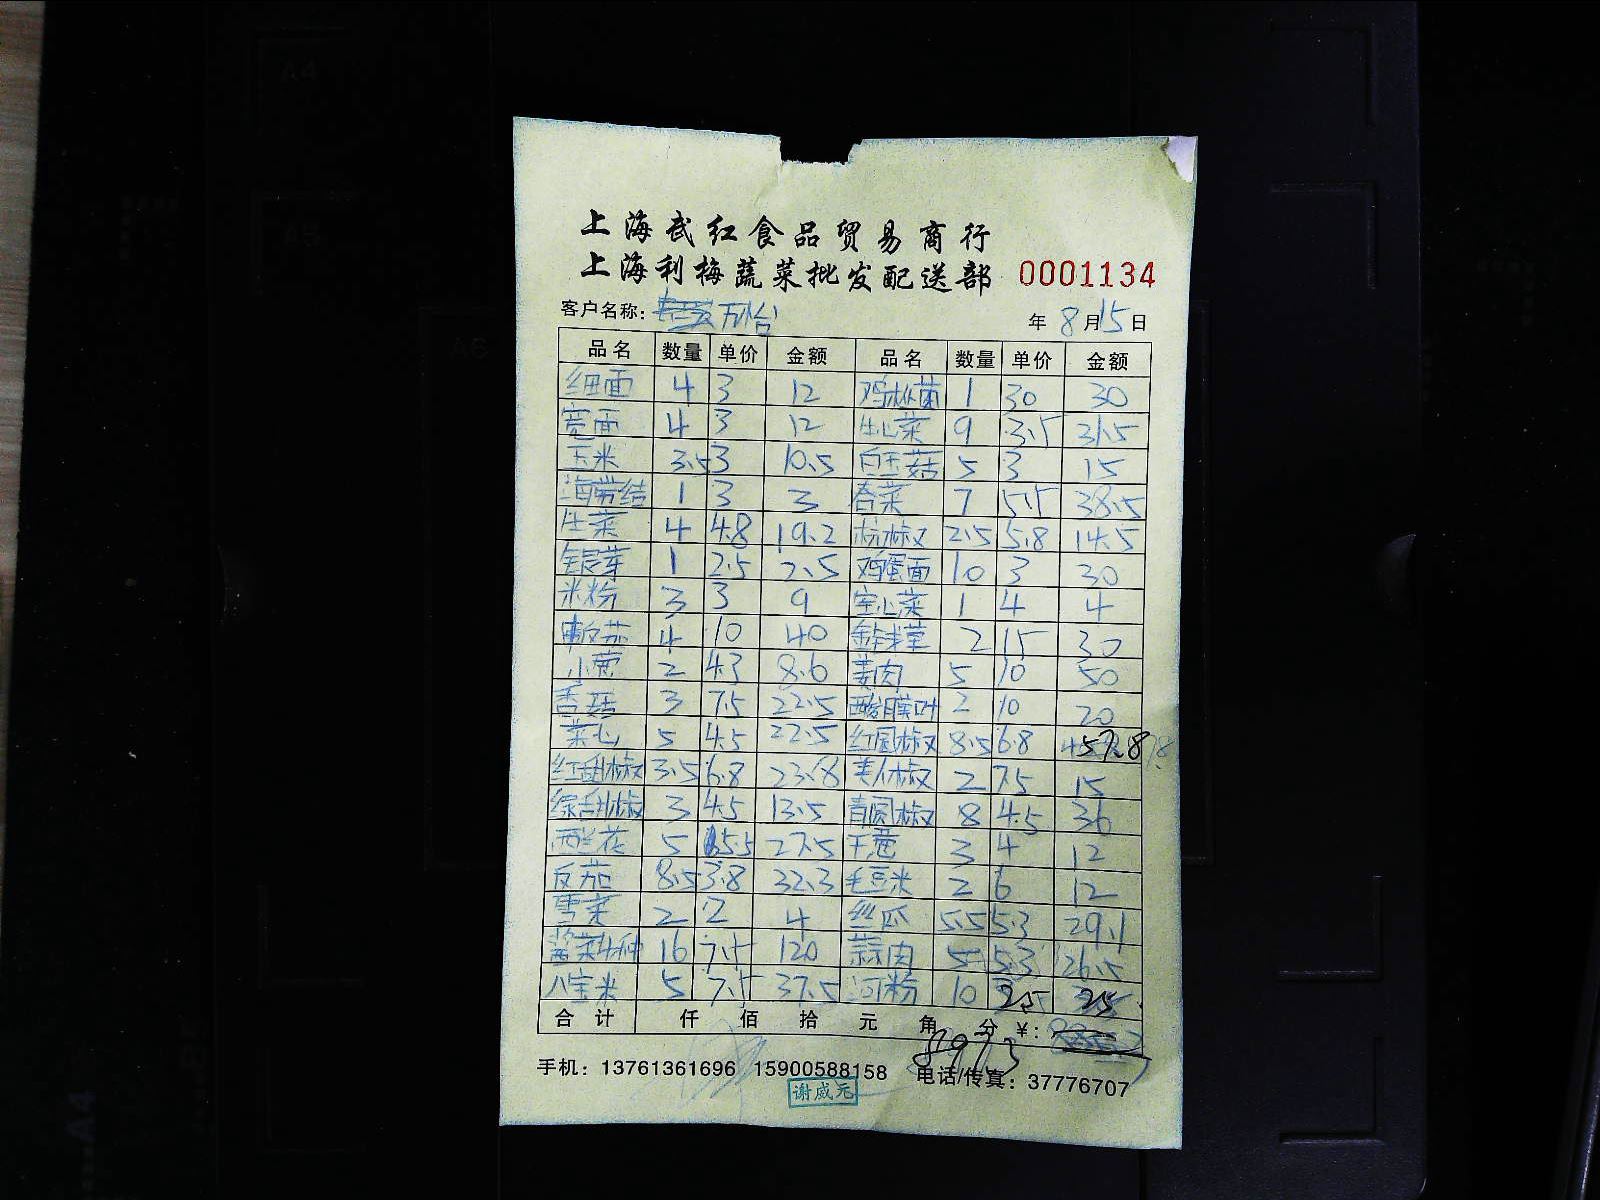 上海武红食品贸易商行
上海利梅蔬菜批发配送部 0001134
客户名称: 万怡 年 8 月 15 日
品名 数量 单价 金额 品名 数量 单价 金额
细面 4 3 12 鸡枞菌 1 30 30
宽面 4 3 12 生心菜 9 3.5 31.5
玉米 3.5 3 10.5 白玉菇 5 3 15
海带结 1 3 3 杏菜 7 5.5 38.5
生菜 4 4.8 19.2 杭椒 2.5 5.8 14.5
银芽 1 2.5 2.5 鸡蛋面 10 3 30
米粉 3 3 9 空心菜 1 4 4
4 10 40 2 15 30
小葱 2 4.3 8.6 姜肉 5 10 50
香菇 3 7.5 22.5 2 10 20
菜心 5 4.5 22.5 红圆椒 8.5 6.8 57.8
红甜椒 3.5 6.8 23.8 美人椒 2 7.5 15
绿甜椒 3 4.5 13.5 青圆椒 8 4.5 36
西兰花 5 5.5 27.5 干葱 3 4 12
反茄 8.5 3.8 32.3 毛豆米 2 6 12
雪菜 2 2 4 丝瓜 5.5 5.3 29.1
16 7.5 120 蒜肉 5 5.3 26.5
八宝米 5 7.5 37.5 河粉 10 2.5 25
合计 仟 佰 拾 元 角 分 ¥:
897.3
手机: 13761361696 15900588158 电话/传真: 37776707
谢威元